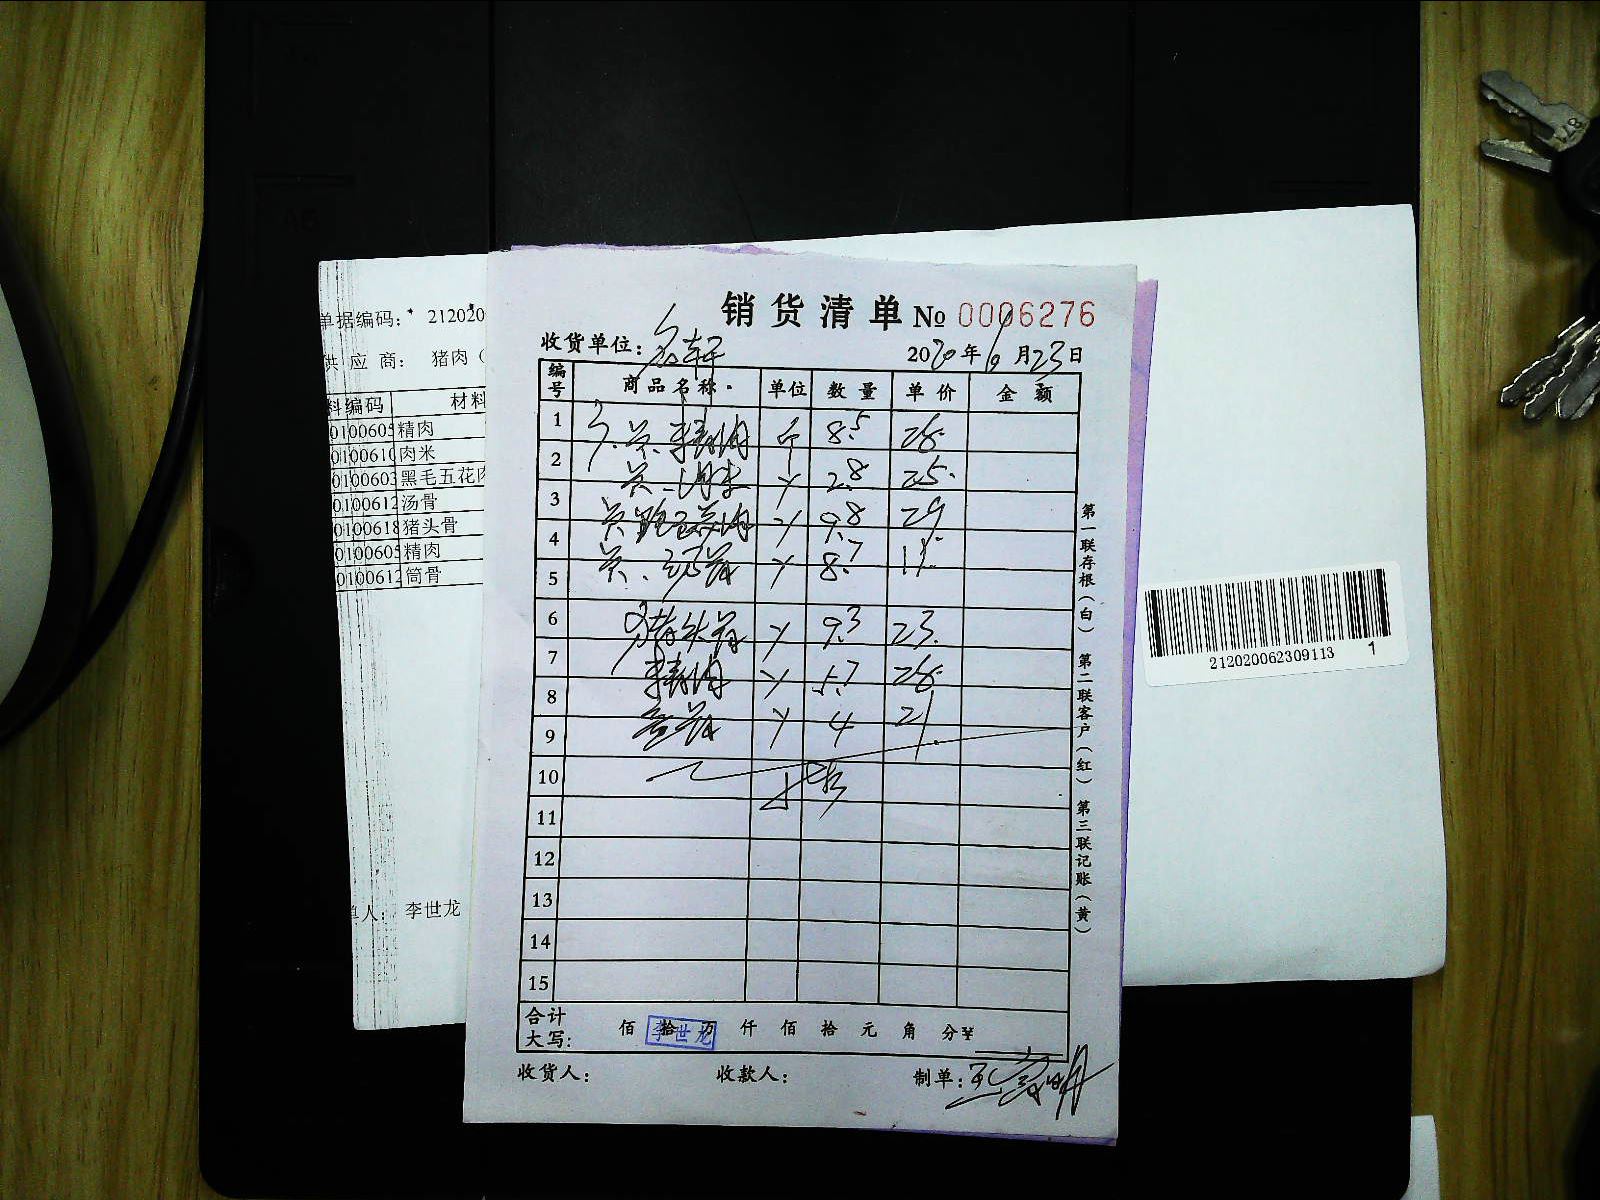 单据编码: 212020
供 应 商: 猪肉(
料编码 材料
0100605 精肉
0100610 肉米
0100603 黑毛五花肉
0100612 汤骨
0100618 猪头骨
0100605 精肉
0100612 筒骨
单人: 李世龙
销货清单 № 0006276
收货单位: 名轩
2020年6月23日
编号 商品名称 单位 数量 单价 金额
1 精肉 斤 8.5 28
2 肉末 2.8 25
3 9.8 29
4 8.7 11
5
6 猪头骨 9.3 23
7 精肉 5.7 28
8 筒骨 4 21
9
10
11
12
13
14
15
合计大写: 佰 拾 万 仟 佰 拾 元 角 分 ¥
李世龙
收货人: 收款人: 制单:
第一联存根(白) 第二联客户(红) 第三联记账(黄)
212020062309113 1